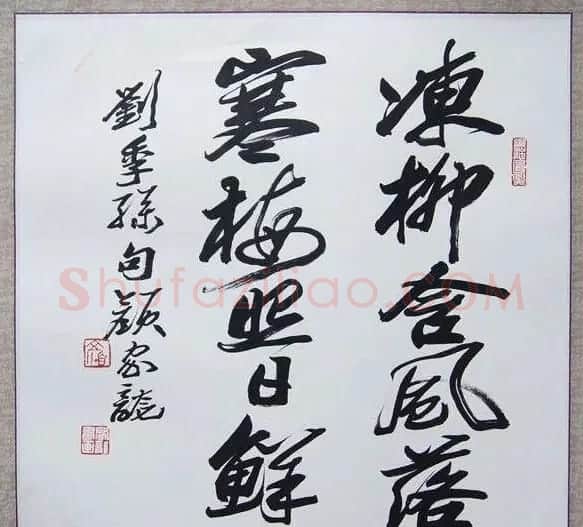 凍柳含風落
寒梅照日鮮
劉季孫句顏家龍
Shufaziliao.COM